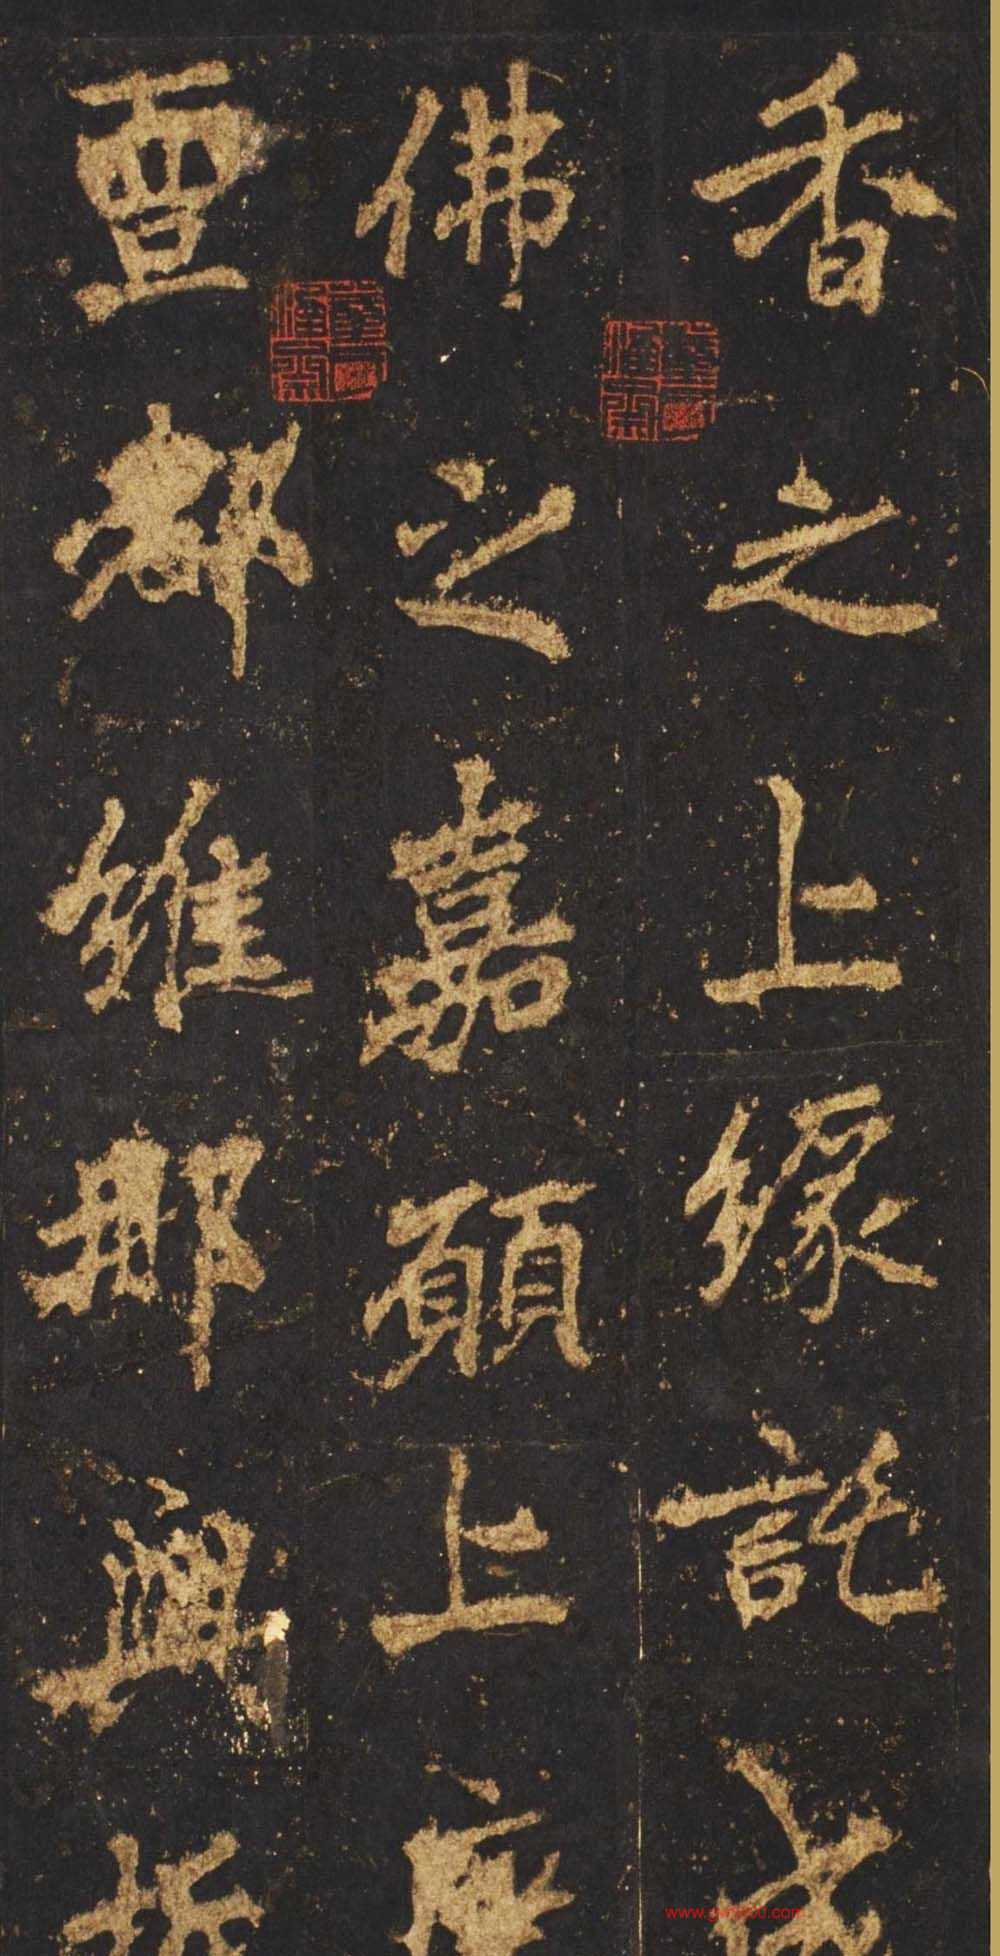 香之上緣託
佛之嘉願上
亶都維那興
www.gw8000.com